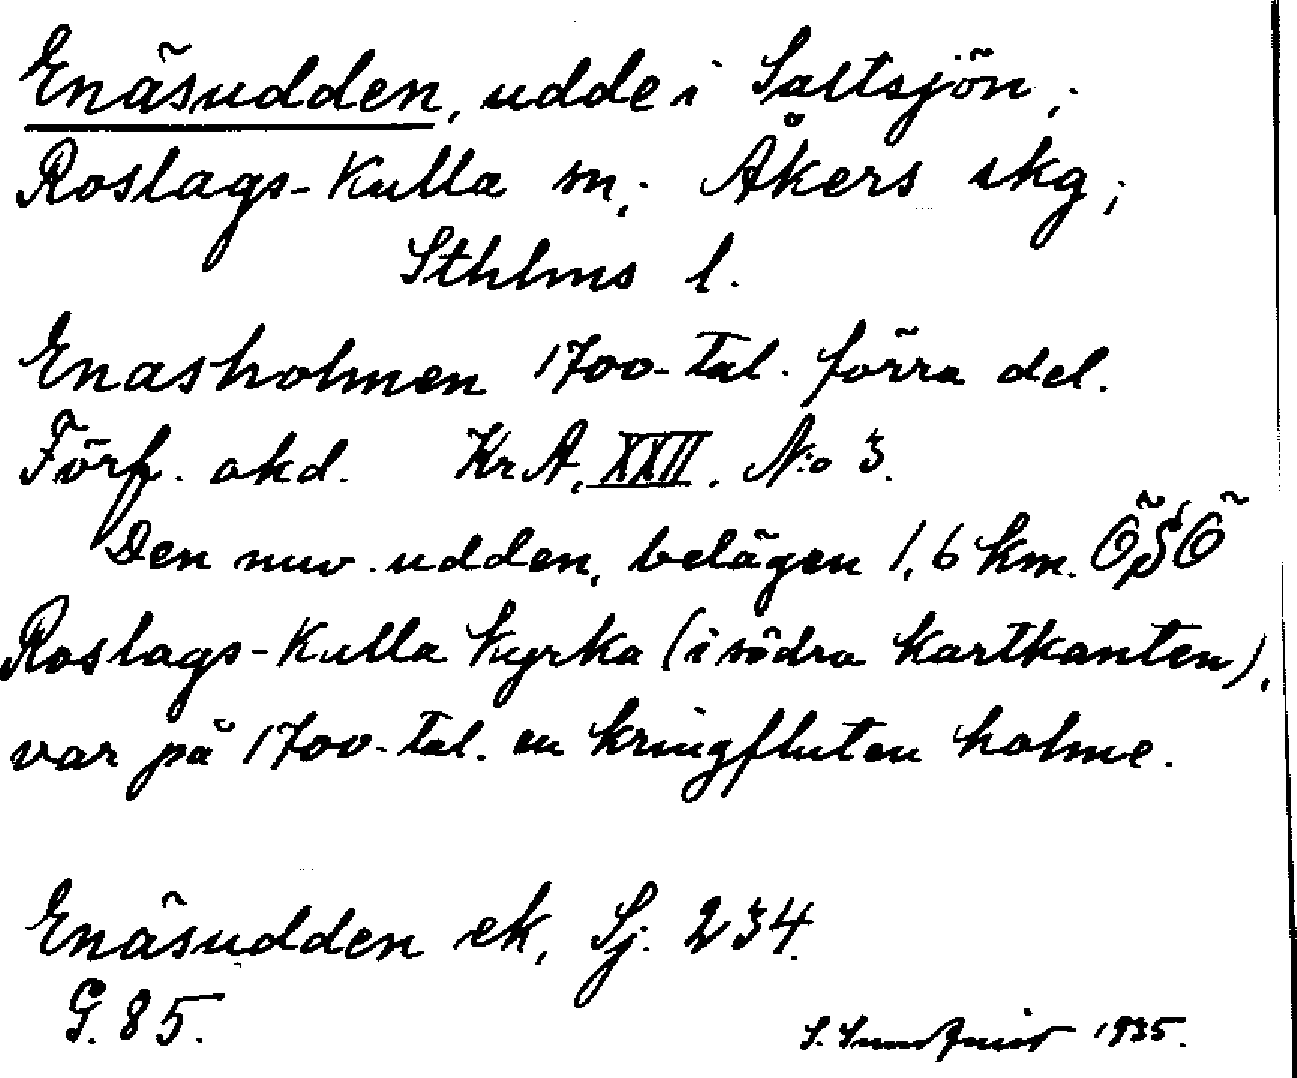 Enäsudden, udde i Saltsjön,
Roslags-Kulla sn; Åkers skg;
Sthlms l.
Enasholmen 1700-tal. förra del.
Förf. okd. Kr A, XXII. No 3.
Den nuv. udden, belägen 1,6 km. ÖSÖ
Roslags-Kulla kyrka (i södra kartkanten),
var på 1700-tal. en kringfluten holme.
Enäsudden ek, Sj. 234.
G. 85.
S. Sundquist 1935.